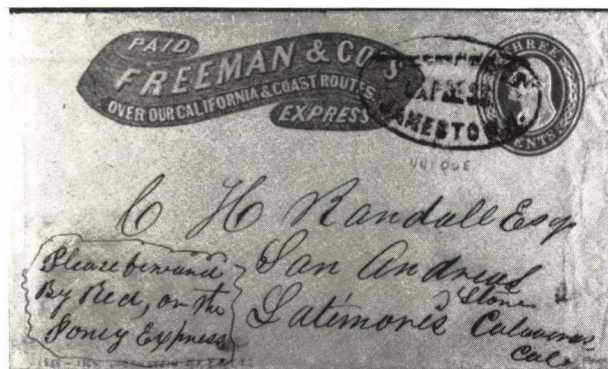 PAID
FREEMAN & CO'S
OVER OUR CALIFORNIA & COAST ROUTES
EXPRESS
EXPRESS
JAMESTO
THREE
CENTS
UNIQUE
C H Randall Esq
San Andreas
Latimore's Store
Calaveras
Cal
Please forward
By Red, or the
Poney Express